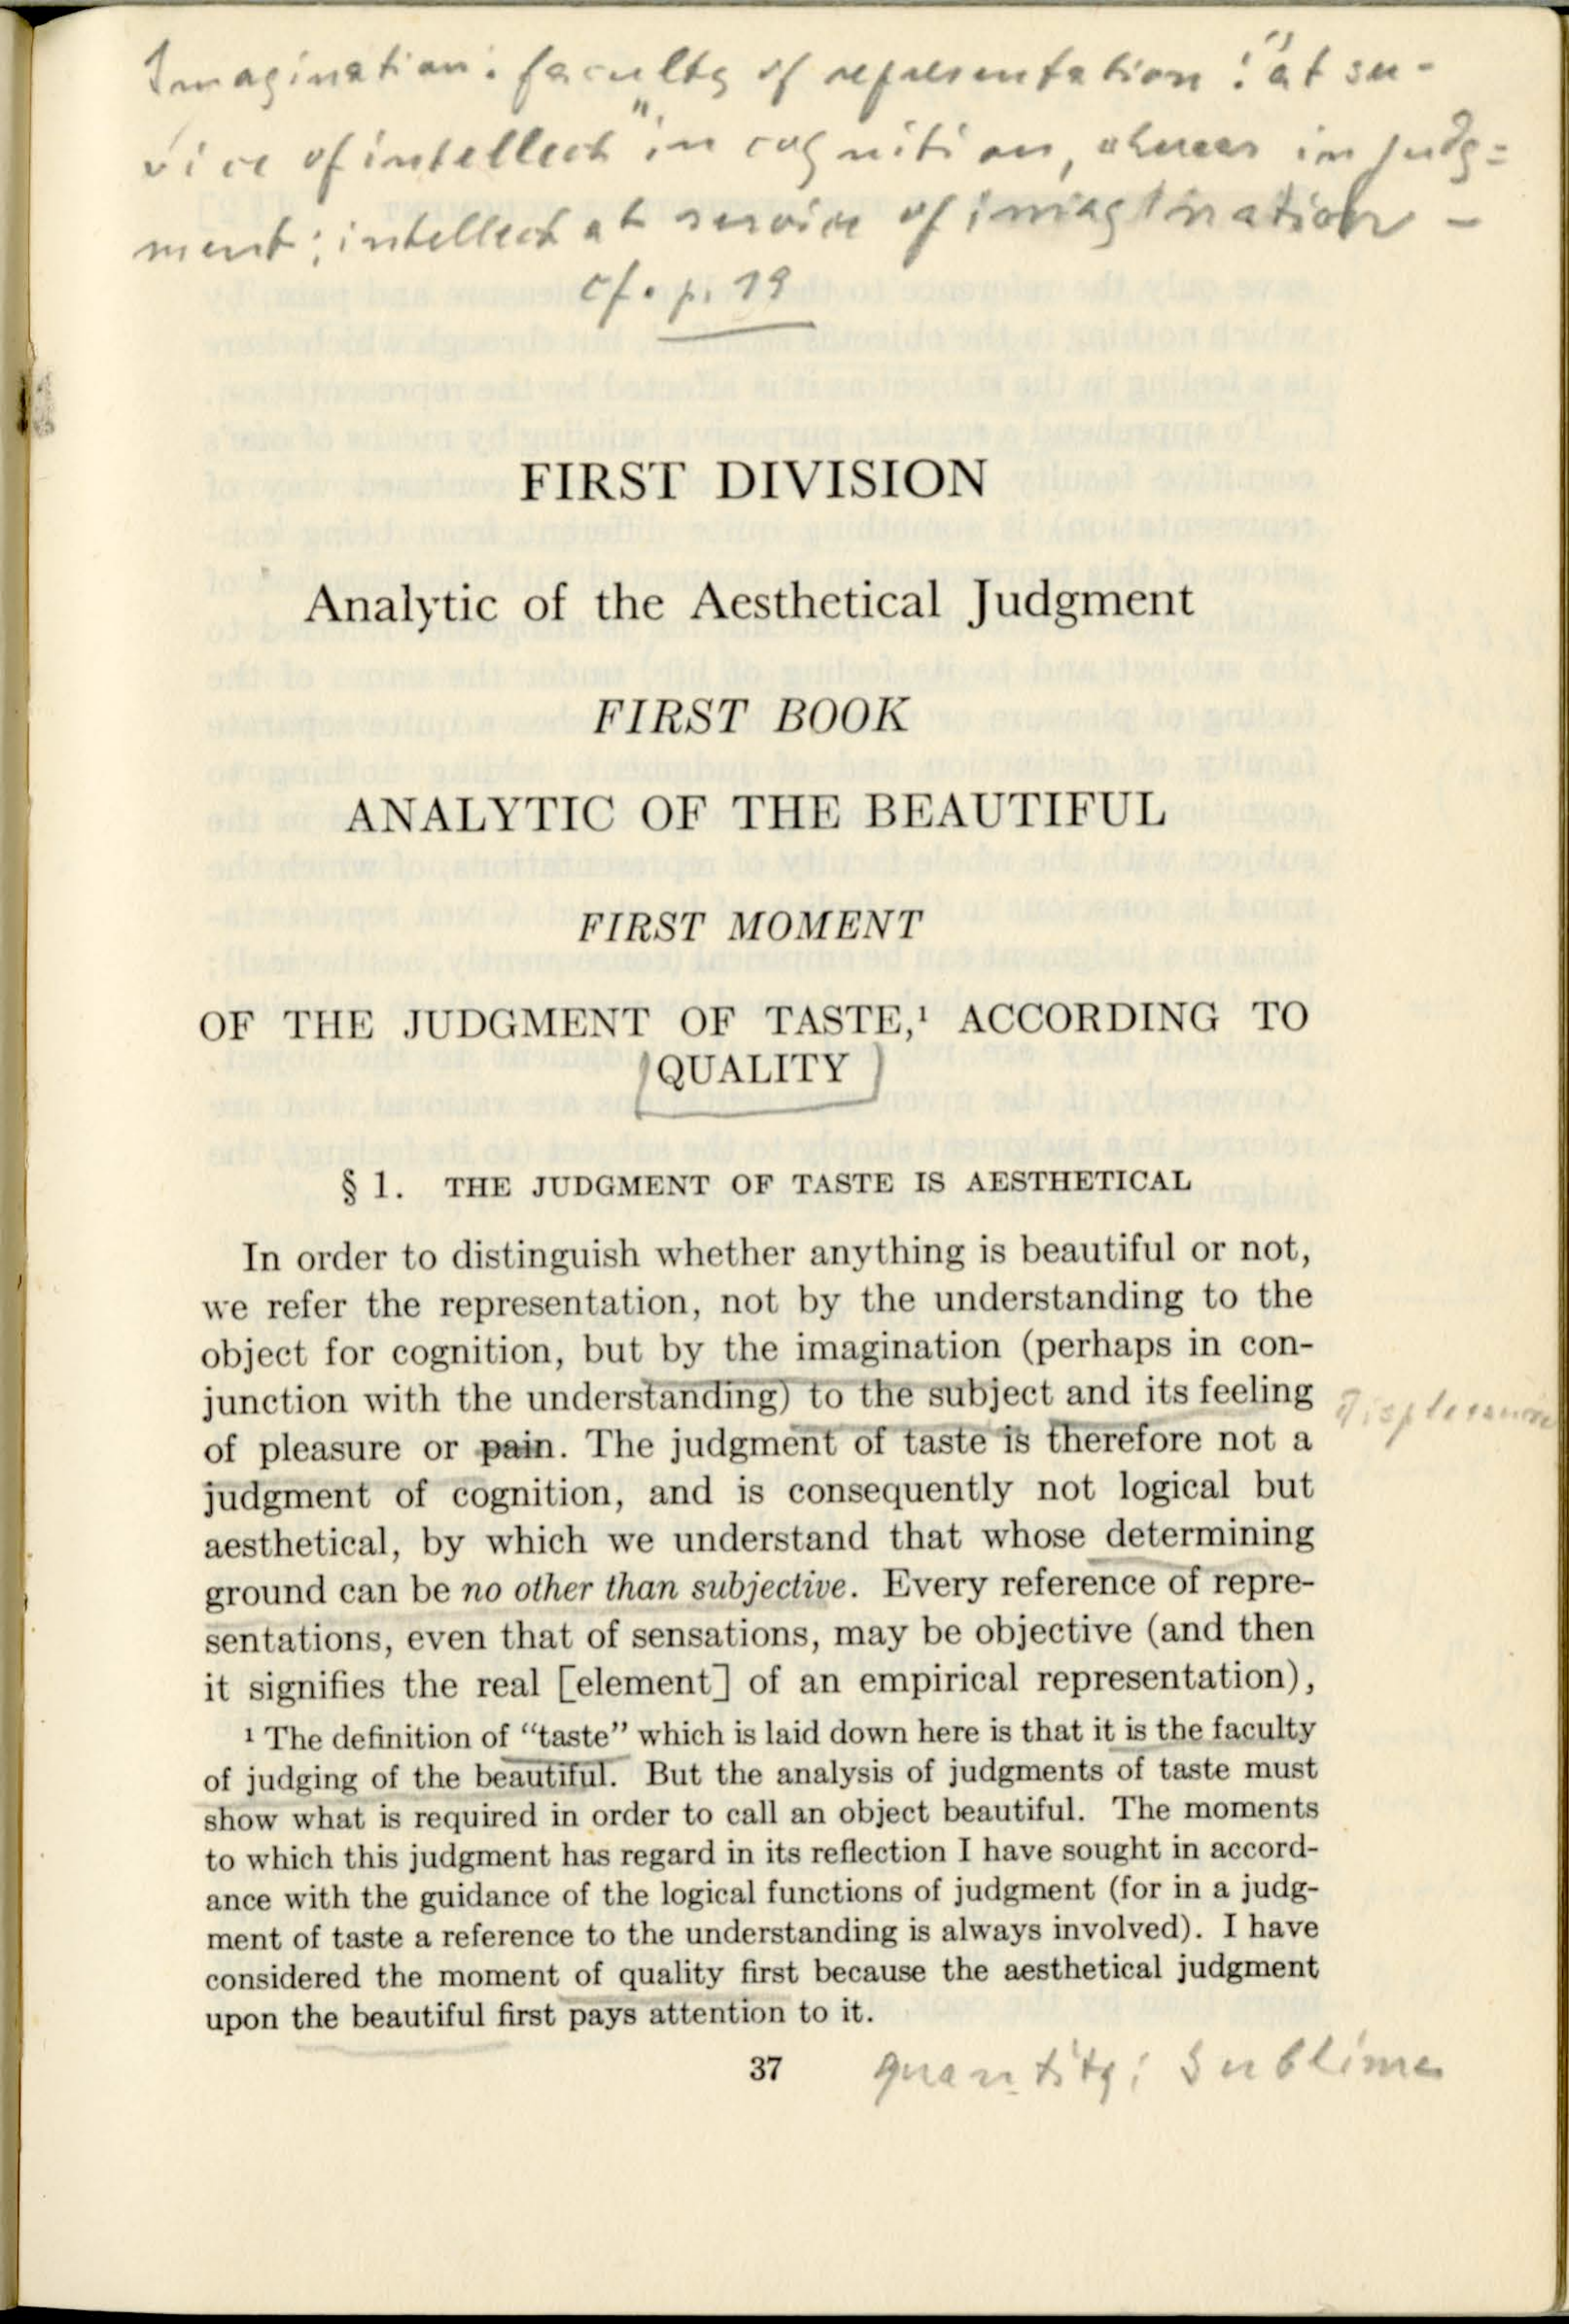 Imagination: faculty of representation: "at ser-
vice of intellect" in cognition, whereas in judg=
ment: intellect at service of imagination -
cf. p. 19
FIRST DIVISION
Analytic of the Aesthetical Judgment
FIRST BOOK
ANALYTIC OF THE BEAUTIFUL
FIRST MOMENT
OF THE JUDGMENT OF TASTE,¹ ACCORDING TO
QUALITY
§ 1. THE JUDGMENT OF TASTE IS AESTHETICAL
In order to distinguish whether anything is beautiful or not,
we refer the representation, not by the understanding to the
object for cognition, but by the imagination (perhaps in con-
junction with the understanding) to the subject and its feeling
of pleasure or pain. The judgment of taste is therefore not a
displeasure
judgment of cognition, and is consequently not logical but
aesthetical, by which we understand that whose determining
ground can be no other than subjective. Every reference of repre-
sentations, even that of sensations, may be objective (and then
it signifies the real [element] of an empirical representation),
¹ The definition of “taste” which is laid down here is that it is the faculty
of judging of the beautiful. But the analysis of judgments of taste must
show what is required in order to call an object beautiful. The moments
to which this judgment has regard in its reflection I have sought in accord-
ance with the guidance of the logical functions of judgment (for in a judg-
ment of taste a reference to the understanding is always involved). I have
considered the moment of quality first because the aesthetical judgment
upon the beautiful first pays attention to it.
37
quantity: Sublime